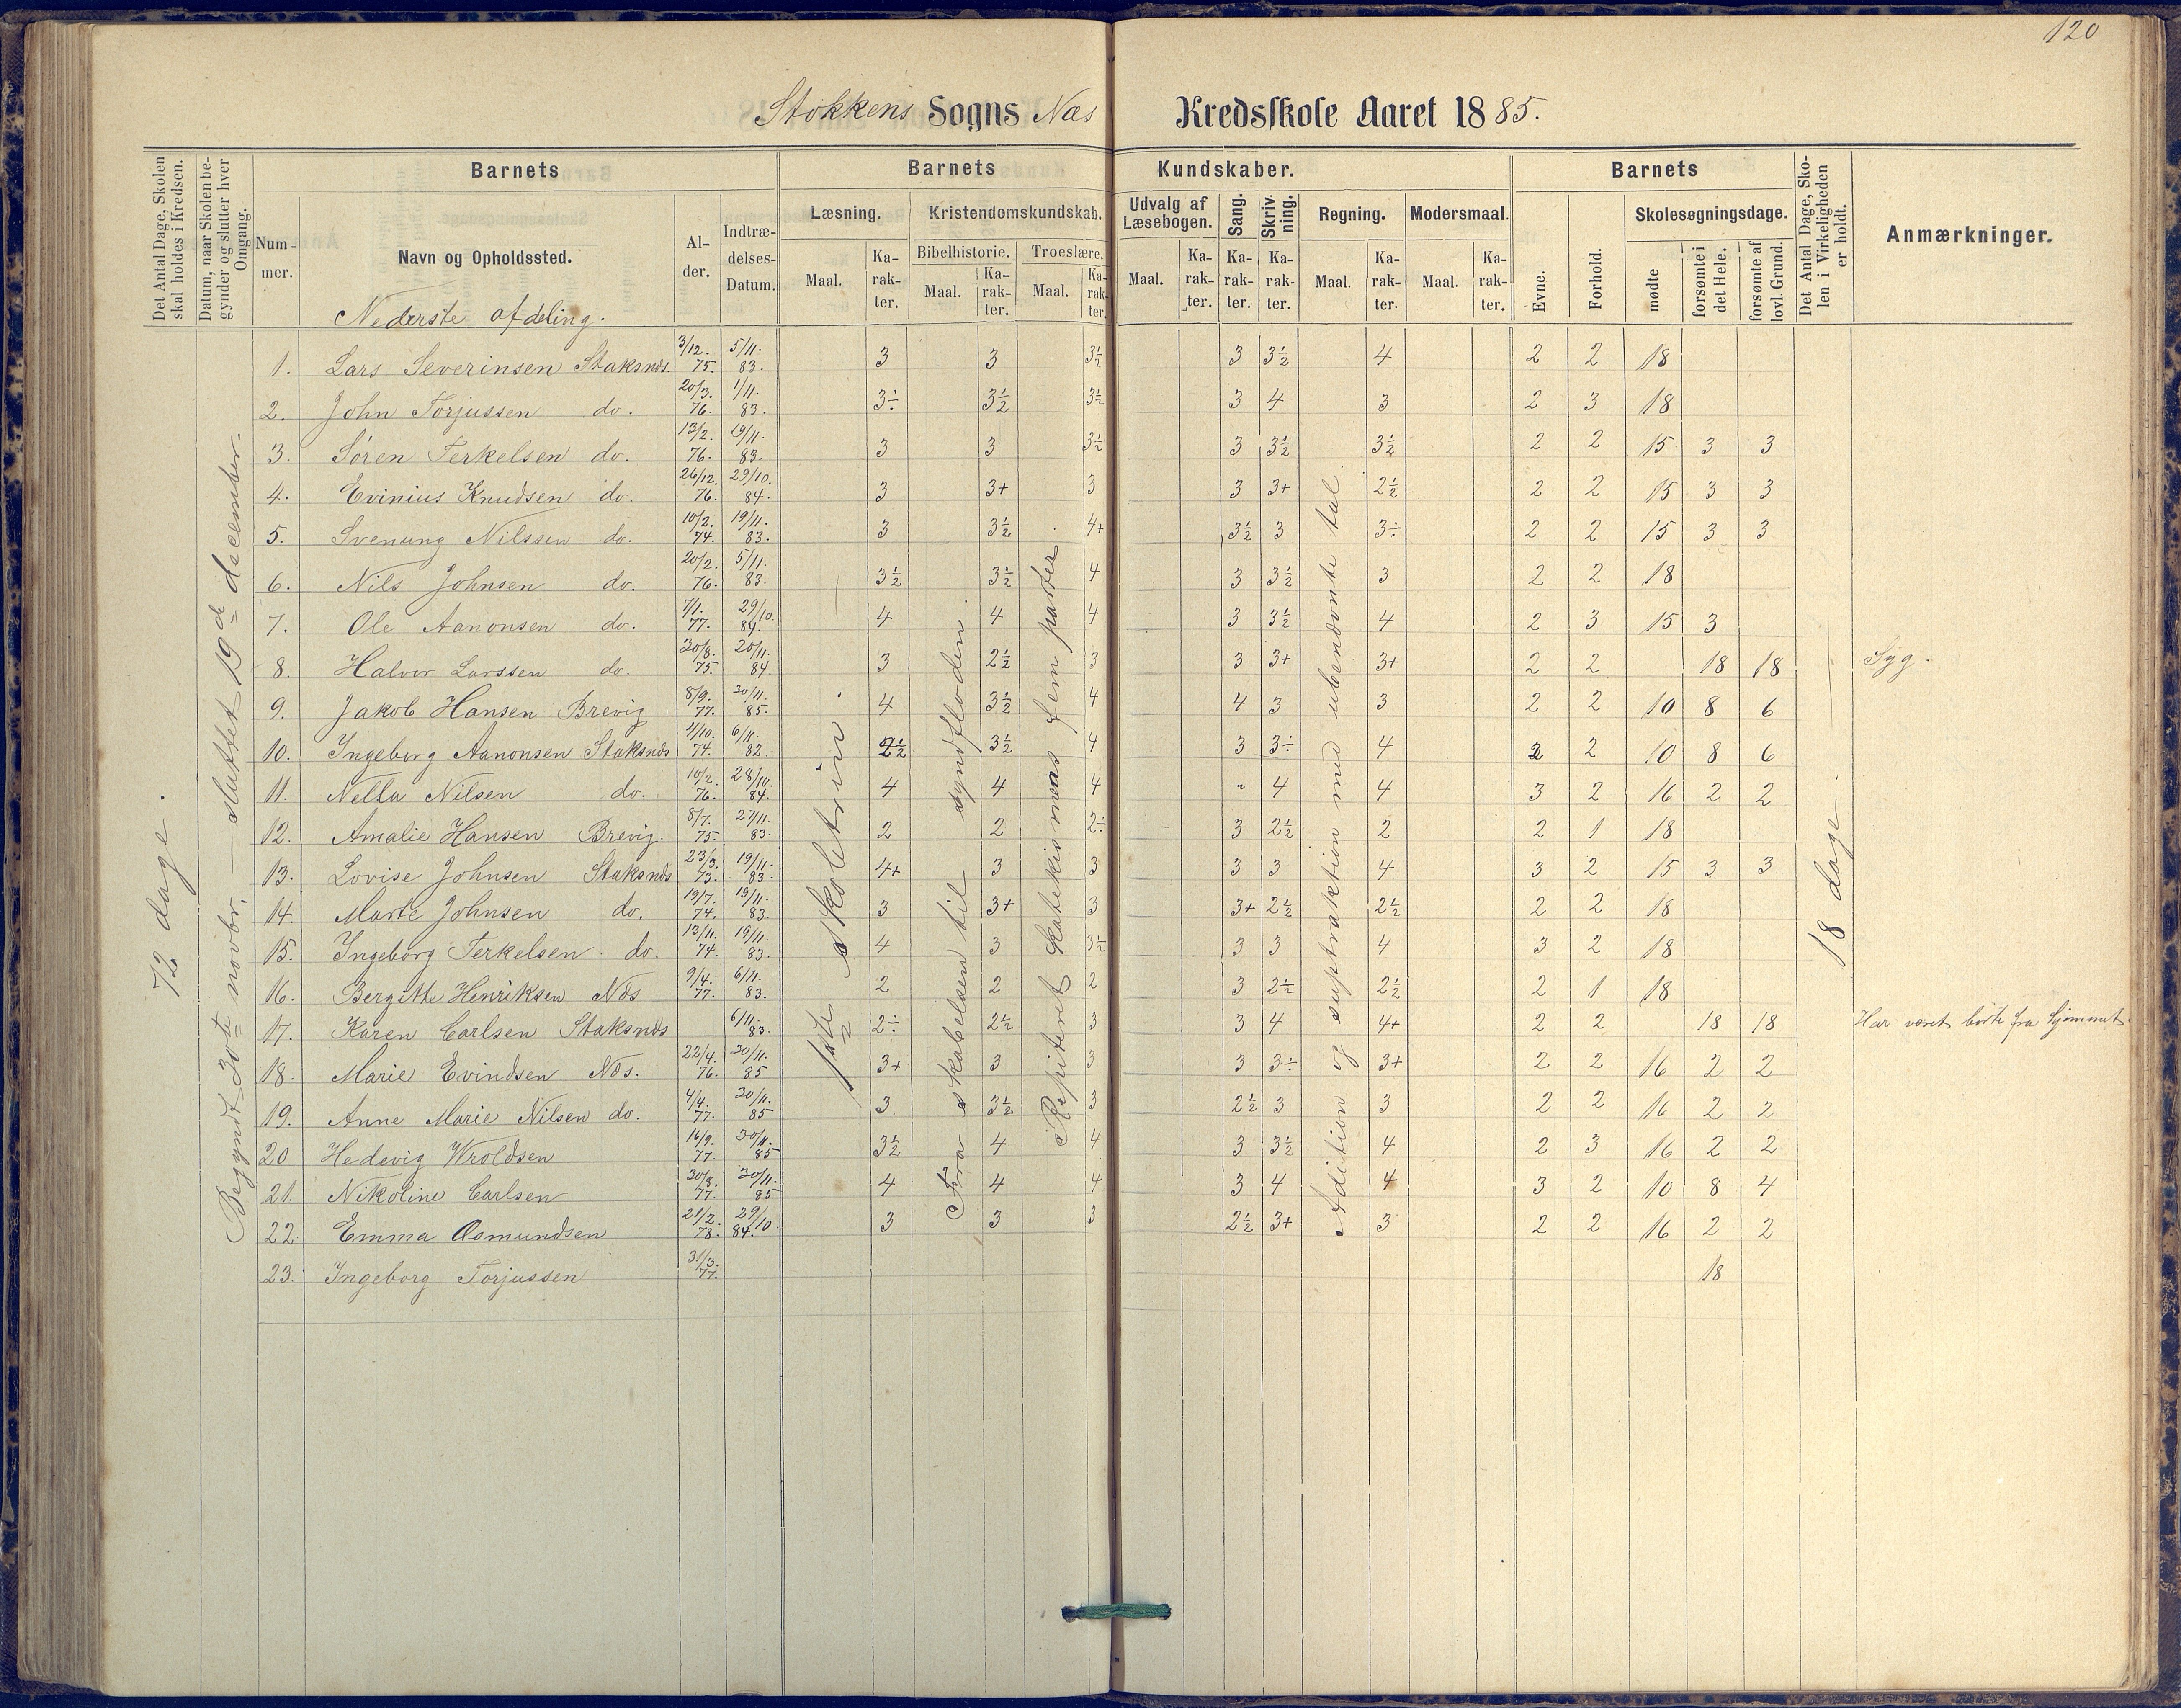 120
Stokkens Sogns Næs Kredsskole Aaret 1885.
Det Antal Dage, Skolen skal holdes i Kredsen.
Datum, naar Skolen begynder og slutter hver Omgang.
Barnets
Nummer.
Navn og Opholdssted.
Alder.
Indtrædelses-Datum.
Barnets Kundskaber.
Læsning. Maal. Karakter.
Kristendomskundskab.
Bibelhistorie. Maal. Karakter.
Troeslære. Maal. Karakter.
Udvalg af Læsebogen. Maal. Karakter.
Sang. Karakter.
Skrivning. Karakter.
Regning. Maal. Karakter.
Modersmaal. Maal. Karakter.
Barnets
Evne.
Forhold.
Skolesøgningsdage.
mødte
forsømte i det Hele.
forsømte af lovl. Grund.
Det Antal Dage, Skolen i Virkeligheden er holdt.
Anmærkninger.
72 dage.
Begyndt 30te novbr. — sluttet 19de december.
1ste skoletrin.
Fra skabelsen til syndfloden.
Repiteret katekismens fem parter
Adition og suptraktion med ubenævnte tal.
18 dage.
Nederste afdeling.
1. Lars Severinsen Staksnæs. 3/12. 75. 5/11. 83. 3 3 3½ 3 3½ 4 2 2 18
2. John Torjussen do. 20/3. 76. 1/11. 83. 3÷ 3½ 3½ 3 4 3 2 3 18
3. Søren Terkelsen do. 13/2. 76. 19/11. 83. 3 3 3½ 3 3½ 3½ 2 2 15 3 3
4. Evinius Knudsen do. 26/12. 76. 29/10. 84. 3 3+ 3 3 3+ 2½ 2 2 15 3 3
5. Svenung Nilssen do. 10/2. 74. 19/11. 83. 3 3½ 4+ 3½ 3 3÷ 2 2 15 3 3
6. Nils Johnsen do. 20/2. 76. 5/11. 83. 3½ 3½ 4 3 3½ 3 2 2 18
7. Ole Aanonsen do. 7/1. 77. 29/10. 84. 4 4 4 3 3½ 4 2 3 15 3
8. Halvor Larssen do. 30/8. 75. 20/11. 84. 3 2½ 3 3 3+ 3+ 2 2 18 18 Syg.
9. Jakob Hansen Brevig 8/9. 77. 30/11. 85. 4 3½ 4 4 3 3 2 2 10 8 6
10. Ingeborg Aanonsen Staksnæs 4/10. 74. 6/11. 82 2½ 3½ 4 3 3÷ 4 2 10 8 6
11. Nella Nilsen do. 10/2. 76. 28/10. 84. 4 4 4 " 4 4 3 2 16 2 2
12. Amalie Hansen Brevig. 8/7. 75. 27/11. 83. 2 2 2÷ 3 2½ 2 2 1 18
13. Lovise Johnsen Staksnæs 23/3. 73. 19/11. 83. 4+ 3 3 3 3 4 3 2 15 3 3
14. Marte Johnsen do. 19/7. 74. 19/11. 83. 3 3+ 3 3+ 2½ 2½ 2 2 18
15. Ingeborg Terkelsen do. 13/11. 74. 19/11. 83. 4 3 3½ 3 3 4 3 2 18
16. Bergitte Henriksen Næs 9/4. 77. 6/11. 83. 2 2 2 3 2½ 2½ 2 1 18
17. Karen Carlsen Staksnæs 6/11. 83. 2÷ 2½ 3 3 4 4+ 2 2 18 18 Har været borte fra hjemmet.
18. Marie Evindsen Næs. 22/4. 76. 30/11. 85 3+ 3 3 3 3÷ 3+ 2 2 16 2 2
19. Anne Marie Nilsen do. 4/4. 77. 30/11. 85 3 3½ 3 2½ 3 3 2 2 16 2 2
20 Hedevig Wroldsen 16/9. 77. 30/11. 85 3½ 4 4 3 3½ 4 2 3 16 2 2
21. Nikoline Carlsen 30/8. 77. 30/11. 85 4 4 4 3 4 4 3 2 10 8 4
22. Emma Osmundsen 21/2. 78. 29/10. 84. 3 3 3 2½ 3+ 3 2 2 16 2 2
23. Ingeborg Torjussen 31/3. 77. 18